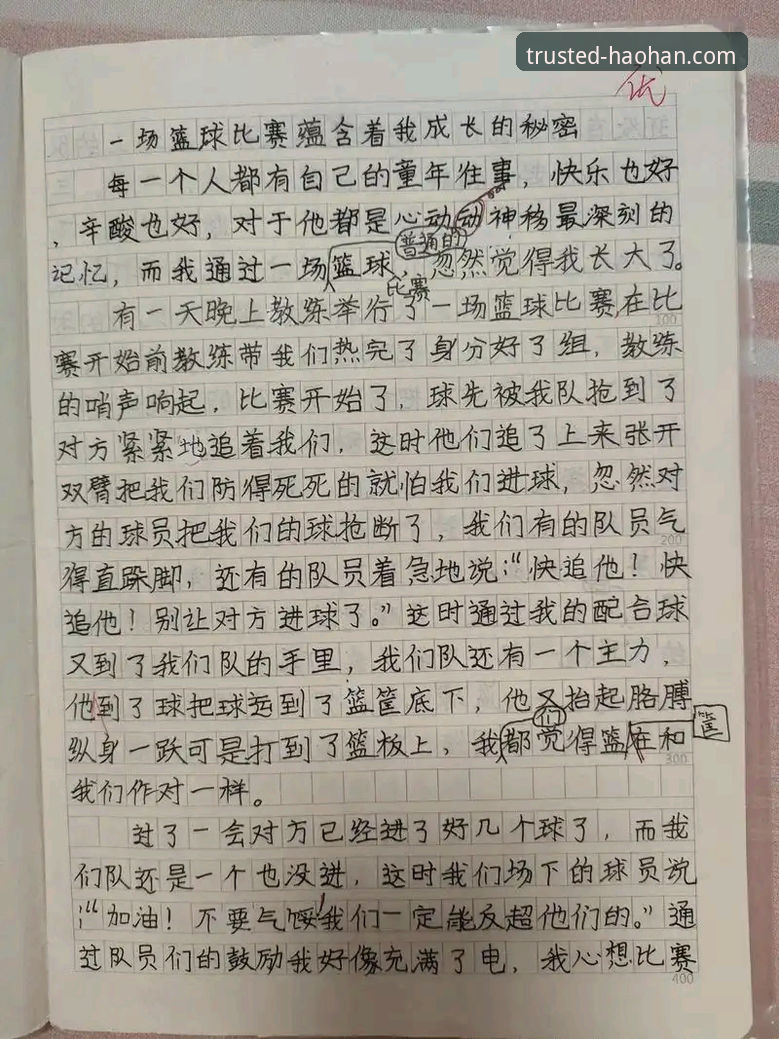 trusted-haohan.com
优
一场篮球比赛蕴含着我成长的秘密
每一个人都有自己的童年往事，快乐也好
，辛酸也好，对于他都是心动动神移最深刻的
普通的
记忆，而我通过一场篮球，忽然觉得我长大了。
比赛
有一天晚上教练举行了一场篮球比赛，在比
100
赛开始前教练带我们热完了身分好了组，教练
的哨声响起，比赛开始了，球先被我队抢到了
对方紧紧地追着我们，这时他们追了上来张开
双臂把我们防得死死的就怕我们进球，忽然对
方的球员把我们的球抢断了，我们有的队员气
200
得直跺脚，还有的队员着急地说：“快追他！快
追他！别让对方进球了。”这时通过我的配合球
又到了我们队的手里，我们队还有一个主力，
他到了球把球运到了篮筐底下，他又抬起胳膊
们
筐
纵身一跃可是打到了篮板上，我都觉得篮在和
300
我们作对一样。
过了一会对方已经进了好几个球了，而我
们队还是一个也没进，这时我们场下的球员说
：“加油！不要气馁！我们一定能反超他们的。”通
过队员们的鼓励我好像充满了电，我心想比赛
400